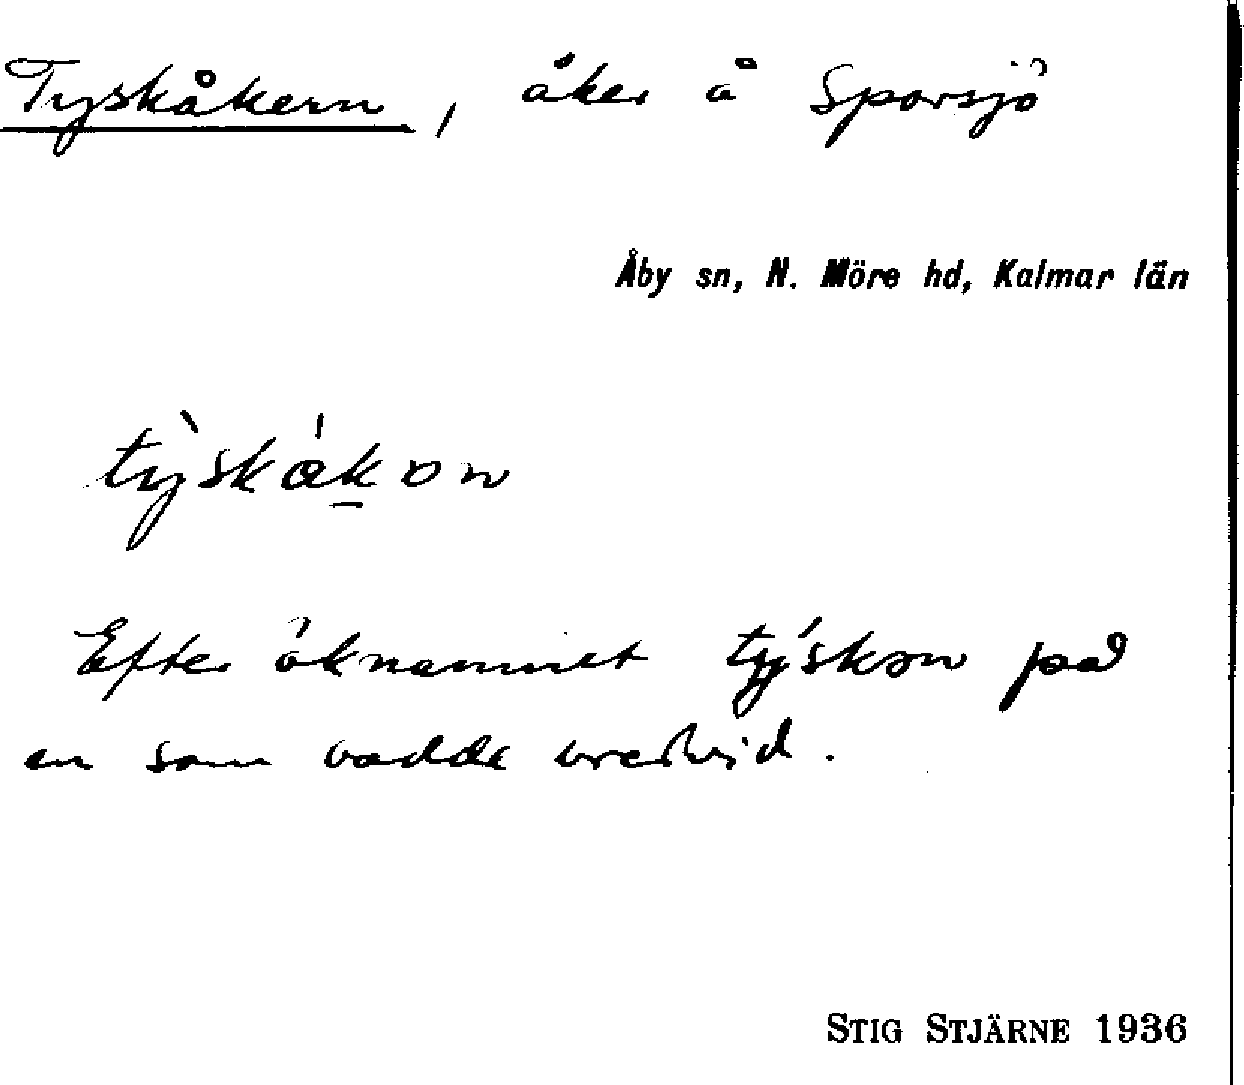 Tyskåkern, åker å Sporsjö
Åby sn, N. Möre hd, Kalmar län
Efter öknamnet på
en som bodde bredvid.
STIG STJÄRNE 1936